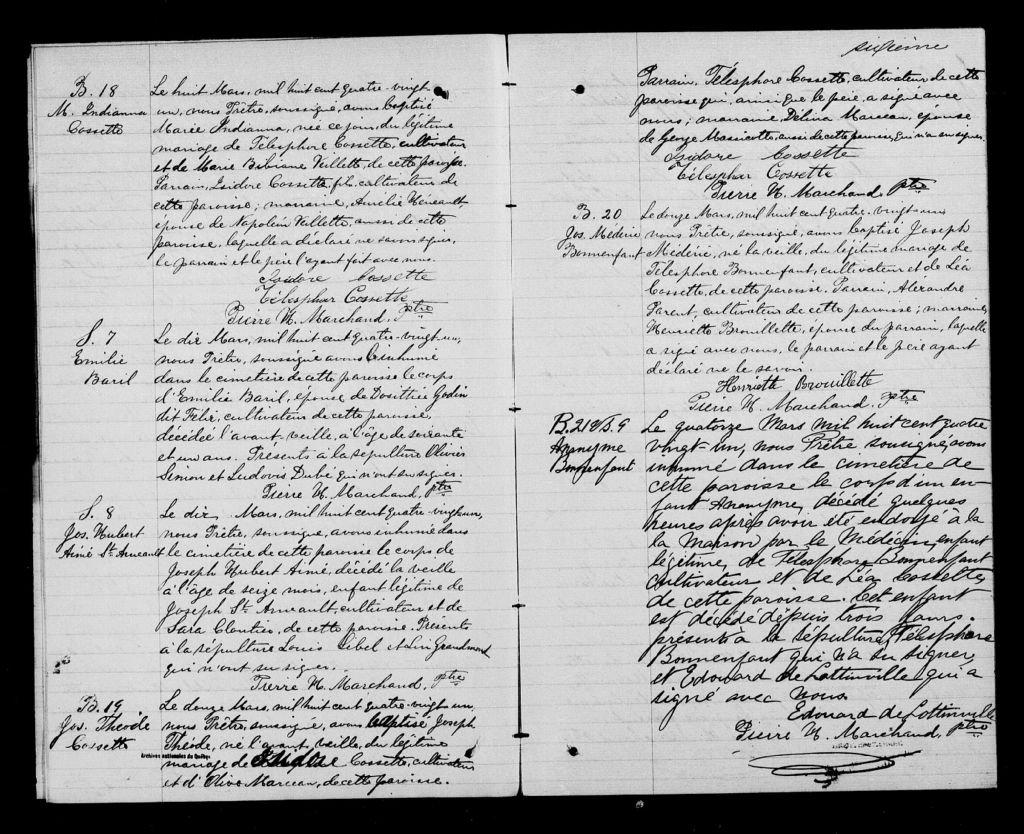 B. 18
M. Indianna
Cossette
Le huit Mars, mil huit cent quatre-vingt
un, nous Prêtre, soussigné, avons baptisé
Marie Indianna, née ce jour, du légitime
mariage de Télesphore Cossette, cultivateur
et de Marie Bibiane Veillette, de cette paroisse.
Parrain, Isidore Cossette, fils, cultivateur de
cette paroisse; marraine, Aurélie Héneault,
épouse de Napoléon Veillette, aussi de cette
paroisse, laquelle a déclaré ne savoir signer,
le parrain et le père l'ayant fait avec nous.
Isidore Cossette
Télesphor Cossette
Pierre H. Marchand, ptre
S. 7
Emilie
Baril
Le dix Mars, mil huit cent quatre-vingt-un,
nous Prêtre, soussigné avons inhumé
dans le cimetière de cette paroisse le corps
d'Emilie Baril, épouse de Dosithée Godin
dit Félix, cultivateur de cette paroisse,
décédée l'avant-veille, à l'âge de soixante
et un ans. Présents à la sépulture Olivier
Simon et Ludovis Dubé qui n'ont su signer.
Pierre H. Marchand, ptre
S. 8
Jos. Hubert
Aimé St. Arneault
Le dix Mars, mil huit cent quatre-vingt-un,
nous Prêtre, soussigné, avons inhumé dans
le cimetière de cette paroisse le corps de
Joseph Hubert Aimé, décédé la veille
à l'âge de seize mois, enfant légitime de
Joseph St. Arneault, cultivateur et de
Sara Cloutier, de cette paroisse. Présents
à la sépulture Louis Libel et Grandmont
qui n'ont su signer.
Pierre H. Marchand, ptre
B. 19
Jos. Théode
Cossette
Le douze Mars, mil huit cent quatre-vingt-un,
nous Prêtre, soussigné, avons baptisé Joseph
Théode, né l'avant-veille, du légitime
Archives nationales du Québec
mariage de Isidore Cossette, cultivateur
et d'Olive Marceau, de cette paroisse.
sixième
Parrain, Télesphore Cossette, cultivateur de cette
paroisse qui, ainsi que le père, a signé avec
nous; marraine Délina Marceau, épouse
de George Massicotte, aussi de cette paroisse, qui n'a su signer.
Isidore Cossette
Télesphor Cossette
Pierre H. Marchand, ptre
B. 20
Jos. Médéric
Bonnenfant
Le douze Mars, mil huit cent quatre-vingt-un
nous Prêtre, soussigné, avons baptisé Joseph
Médéric, né la veille, du légitime mariage de
Télesphore Bonnenfant, cultivateur et de Léa
Cossette, de cette paroisse. Parrain, Alexandre
Parent, cultivateur de cette paroisse; marraine,
Henriette Brouillette, épouse du parrain, laquelle
a signé avec nous, le parrain et le père ayant
déclaré ne le savoir.
Henriette Brouillette
Pierre H. Marchand, ptre
B. 21 & S. 9
Anonyme
Bonnenfant
Le quatorze Mars mil huit cent quatre
vingt-un, nous Prêtre sousigné, avons
inhumé dans le cimetière de
cette paroisse le corps d'un en-
fant Anonyme, décédé quelques
heures après avoir été endoyé à la
la Maison par le Médecin, enfant
légitime, de Télesphore Bonnenfant
Cultivateur et de Léa Cossette,
de cette paroisse. Cet enfant
est décédé depuis trois jours.
présents à la Sépulture, Télesphore
Bonnenfant qui n'a su signer,
et Edouard de Lottinville qui a
signé avec nous
Edouard de Lottinville
Pierre H. Marchand, ptre